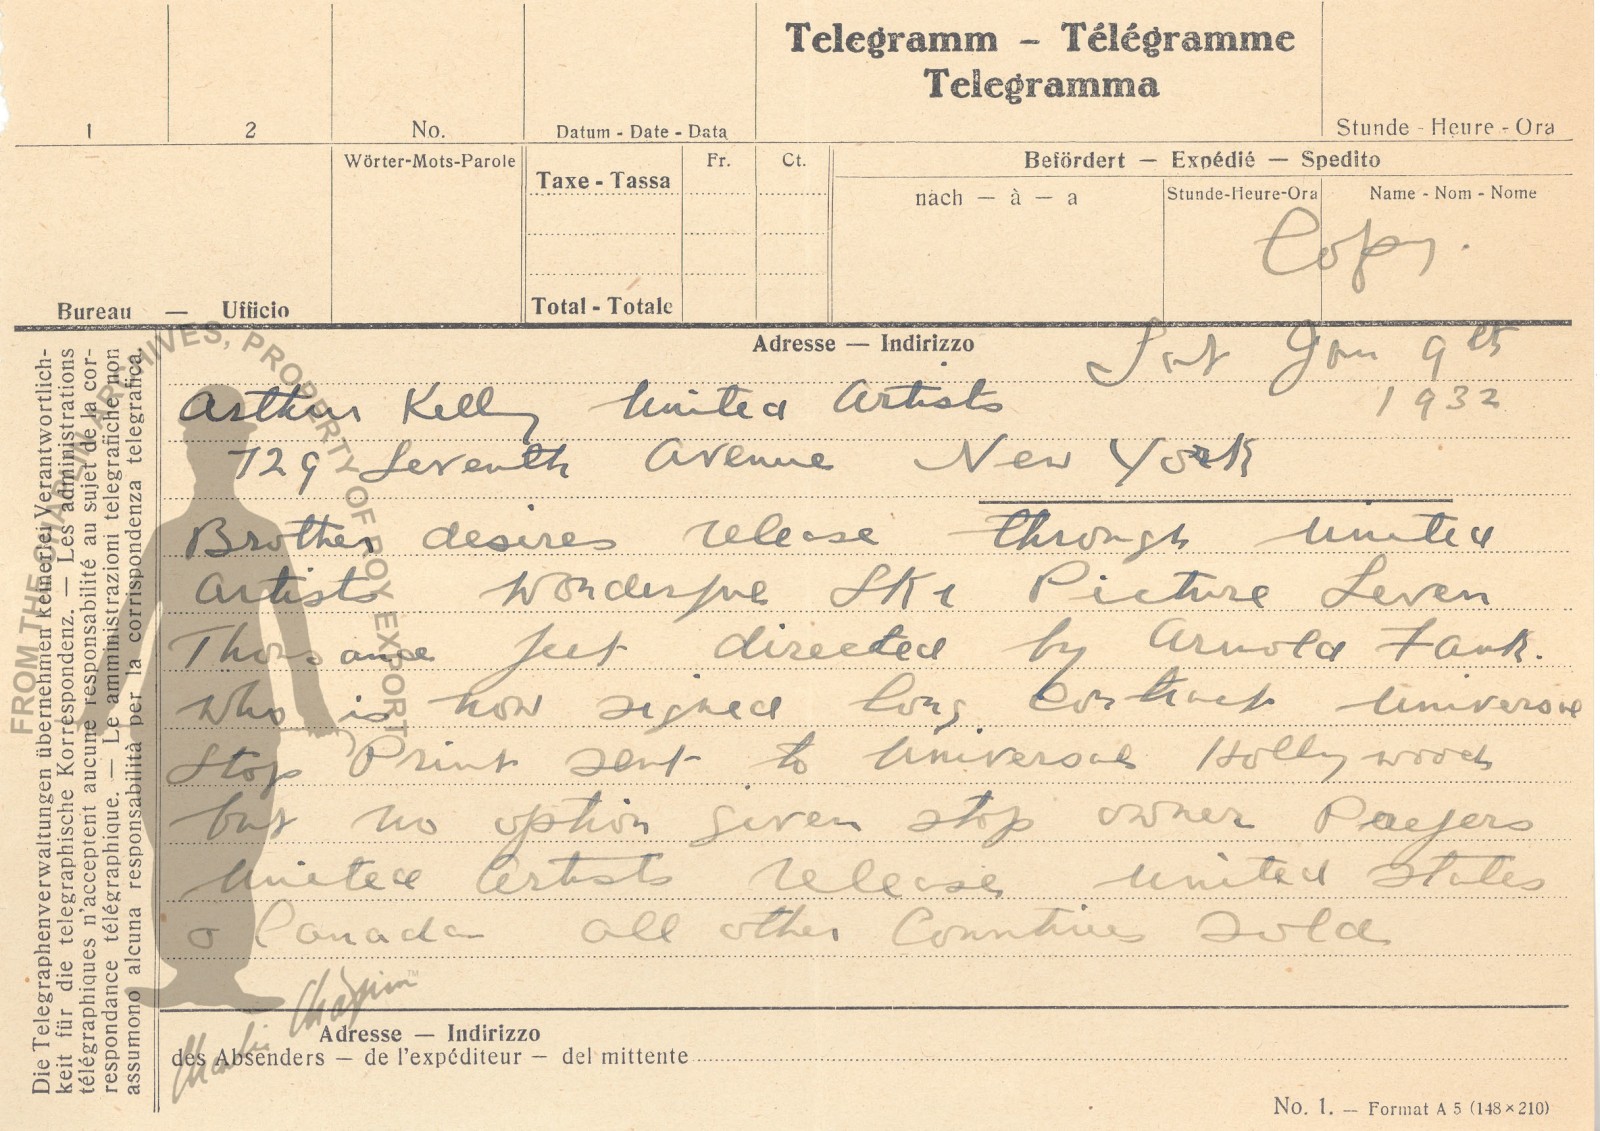 Telegramm – Télégramme
Telegramma
1
2
No.
Datum - Date - Data
Stunde - Heure - Ora
Wörter-Mots-Parole
Taxe - Tassa
Fr.
Ct.
Befördert — Expédié — Spedito
nach — à — a
Stunde-Heure-Ora
Name - Nom - Nome
Copy.
Bureau — Ufficio
Total - Totale
Adresse — Indirizzo
Sat Jan 9th
1932
Arthur Kelly United Artists
729 Seventh Avenue New York
Brother desires release through United
Artists wonderful Ski Picture Seven
Thousand feet directed by Arnold Fank.
Who is now signed long contract Universal
Stop Print sent to Universal Hollywood
but no option given stop owner Prefers
United Artists release United States
o Canada all other Countries sold
Adresse — Indirizzo
des Absenders — de l'expéditeur — del mittente
No. 1. — Format A 5 (148×210)
Die Telegraphenverwaltungen übernehmen keinerlei Verantwortlich-
keit für die telegraphische Korrespondenz. — Les administrations
télégraphiques n'acceptent aucune responsabilité au sujet de la cor-
respondance télégraphique. — Le amministrazioni telegrafiche non
assumono alcuna responsabilità per la corrispondenza telegrafica.
FROM THE CHAPLIN ARCHIVES, PROPERTY OF ROY EXPORT
Charlie Chaplin™